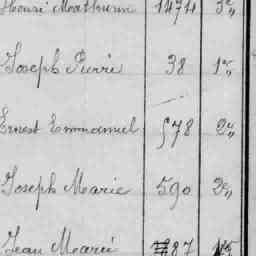 Henri Mathurin 1474 3e,,
Joseph Pierre 38 1e,,
Ernest Emmanuel 578 2e,,
Joseph Marie 590 2e,,
Jean Marie 87